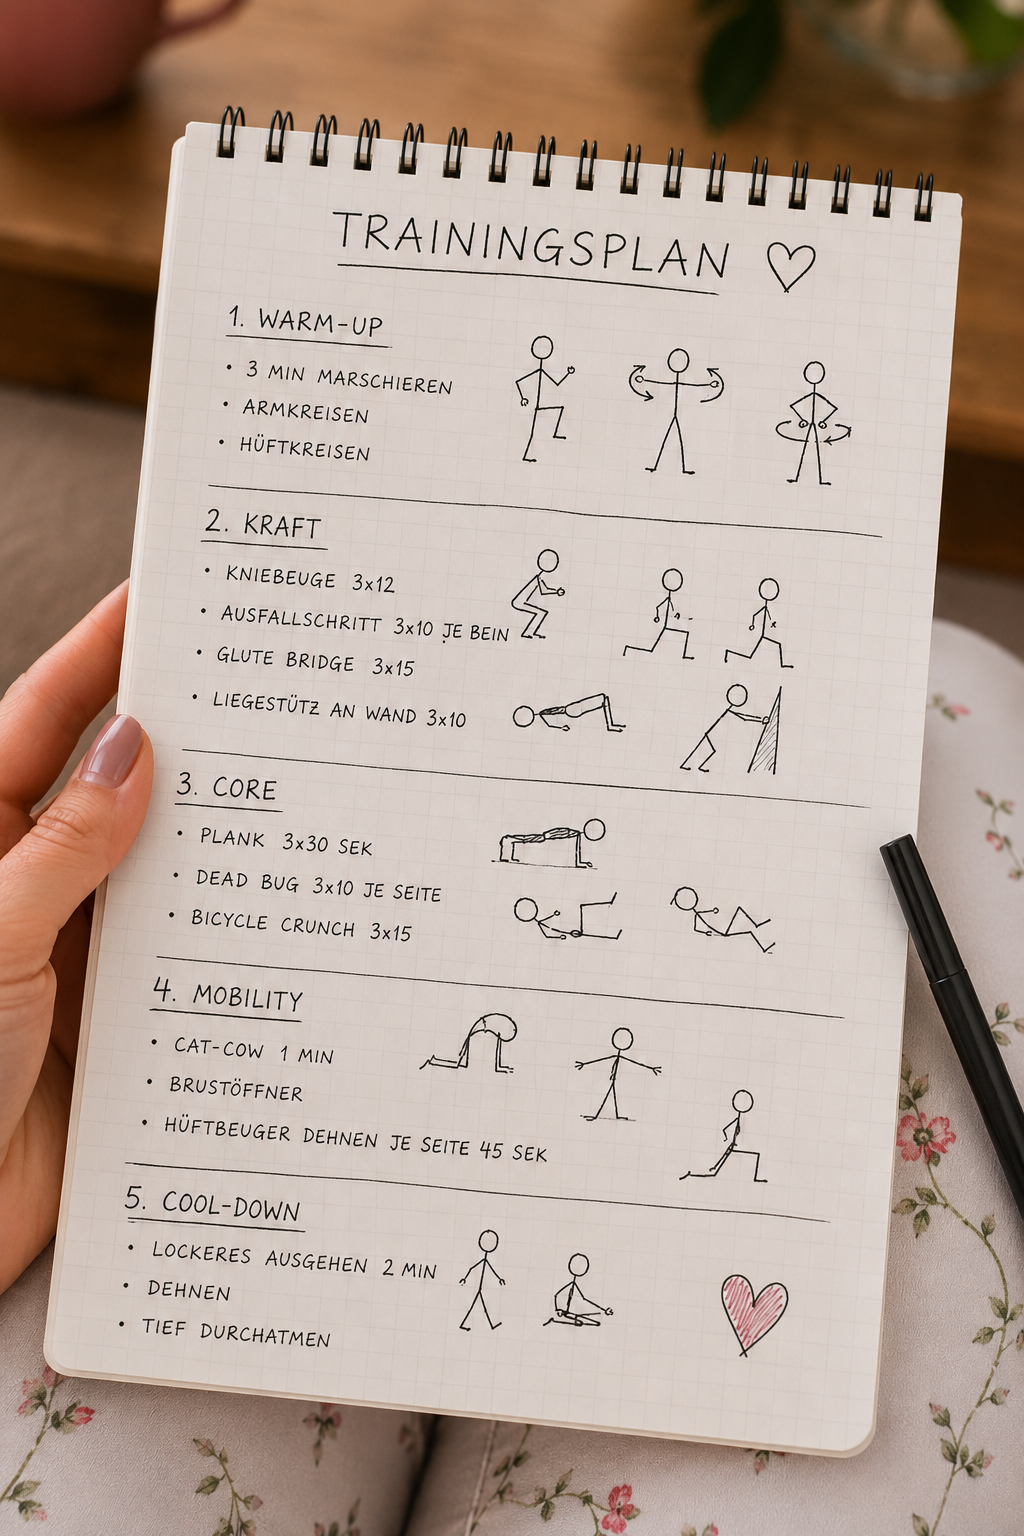 TRAININGSPLAN ♡
1. WARM-UP
• 3 MIN MARSCHIEREN
• ARMKREISEN
• HÜFTKREISEN
2. KRAFT
• KNIEBEUGE 3x12
• AUSFALLSCHRITT 3x10 JE BEIN
• GLUTE BRIDGE 3x15
• LIEGESTÜTZ AN WAND 3x10
3. CORE
• PLANK 3x30 SEK
• DEAD BUG 3x10 JE SEITE
• BICYCLE CRUNCH 3x15
4. MOBILITY
• CAT-COW 1 MIN
• BRUSTÖFFNER
• HÜFTBEUGER DEHNEN JE SEITE 45 SEK
5. COOL-DOWN
• LOCKERES AUSGEHEN 2 MIN
• DEHNEN
• TIEF DURCHATMEN